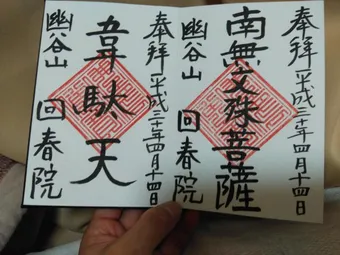 奉拝
平成三十年四月十四日
南無文殊菩薩
幽谷山
回春院
奉拝
平成三十年四月十四日
韋駄天
幽谷山
回春院